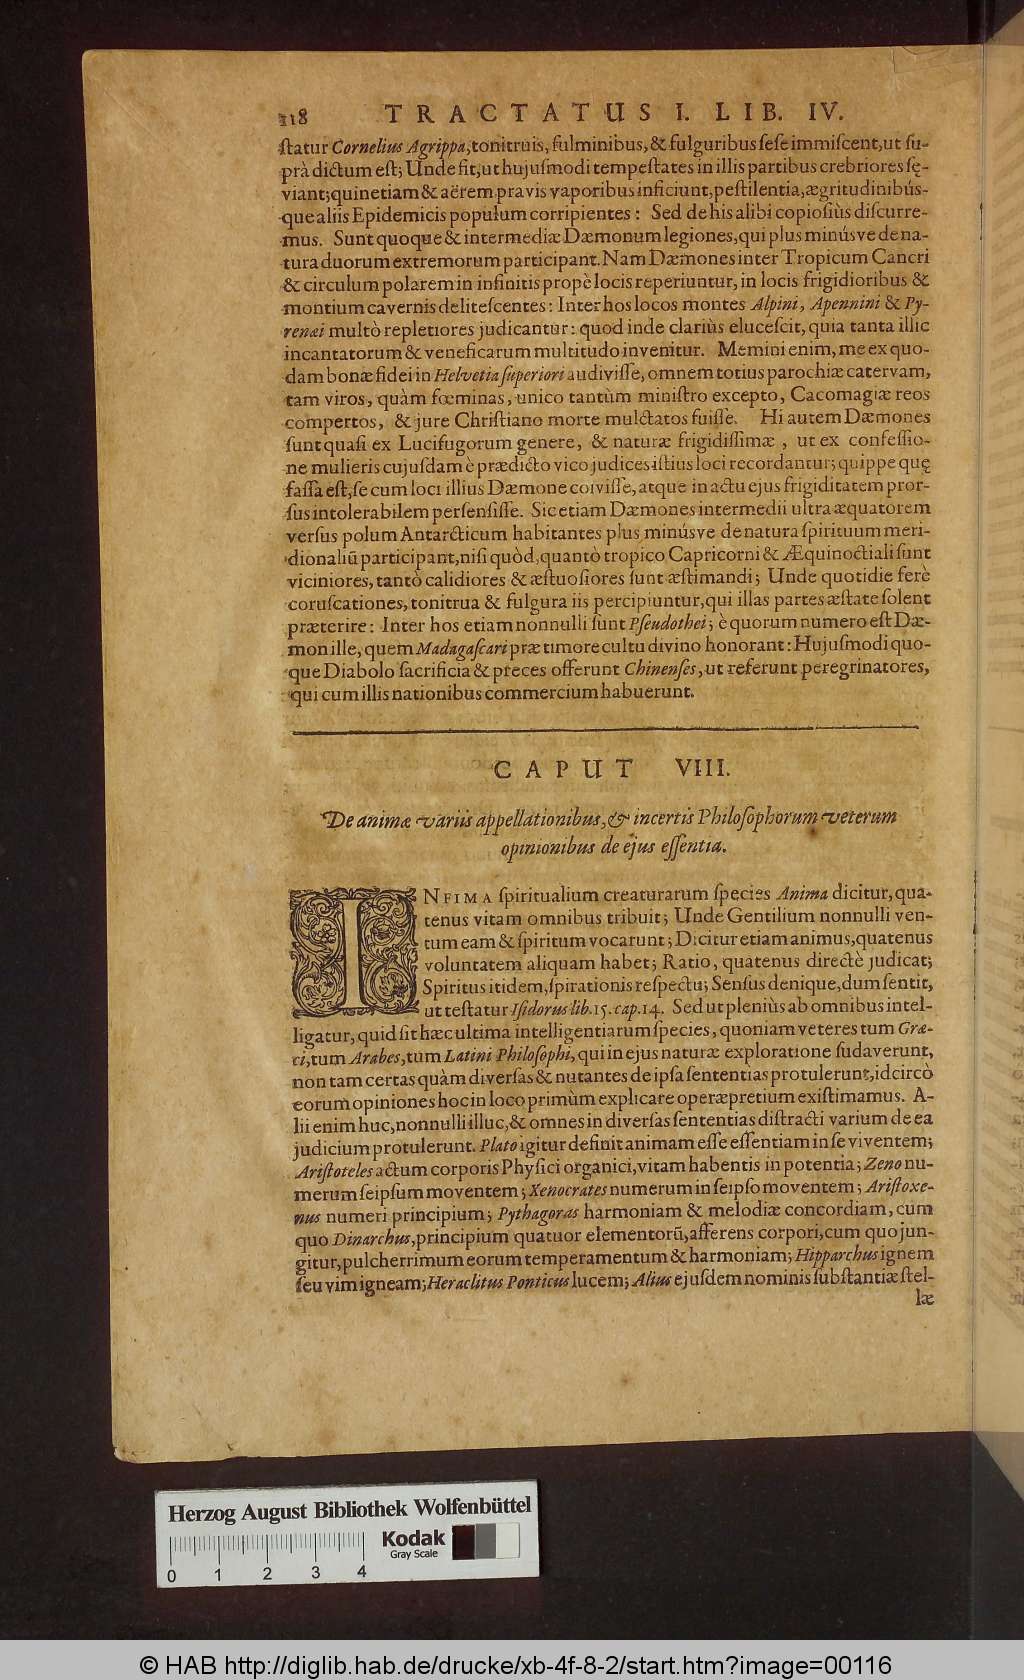 118 TRACTATUS I. LIB. IV.
ſtatur Cornelius Agrippa, tonitruis, fulminibus, & fulguribus ſeſe immiſcent, ut ſu-
prà dictum eſt; Unde fit, ut hujuſmodi tempeſtates in illis partibus crebriores ſę-
viant; quinetiam & aërem pravis vaporibus inficiunt, peſtilentia, ægritudinibúſ-
que aliis Epidemicis populum corripientes: Sed de his alibi copioſiùs diſcurre-
mus. Sunt quoque & intermediæ Dæmonum legiones, qui plus minúsve de na-
tura duorum extremorum participant. Nam Dæmones inter Tropicum Cancri
& circulum polarem in infinitis propè locis reperiuntur, in locis frigidioribus &
montium cavernis deliteſcentes: Inter hos locos montes Alpini, Apennini & Py-
renæi multò repletiores judicantur: quod inde clariùs eluceſcit, quia tanta illic
incantatorum & veneficarum multitudo invenitur. Memini enim, me ex quo-
dam bonæ fidei in Helvetia ſuperiori audiviſſe, omnem totius parochiæ catervam,
tam viros, quàm fœminas, unico tantùm miniſtro excepto, Cacomagiæ reos
compertos, & jure Chriſtiano morte mulctatos fuiſſe. Hi autem Dæmones
ſunt quaſi ex Lucifugorum genere, & naturæ frigidiſſimæ, ut ex confeſſio-
ne mulieris cujuſdam è prædicto vico judices iſtius loci recordantur; quippe quę
faſſa eſt, ſe cum loci illius Dæmone coiviſſe, atque in actu ejus frigiditatem pror-
ſus intolerabilem perſenſiſſe. Sic etiam Dæmones intermedii ultra æquatorem
verſus polum Antarcticum habitantes plus minúsve de natura ſpirituum meri-
dionaliũ participant, niſi quòd, quantò tropico Capricorni & Æquinoctiali ſunt
viciniores, tantò calidiores & æſtuoſiores ſunt æſtimandi; Unde quotidie ferè
coruſcationes, tonitrua & fulgura iis percipiuntur, qui illas partes æſtate ſolent
præterire: Inter hos etiam nonnulli ſunt Pſeudothei; è quorum numero eſt Dæ-
mon ille, quem Madagaſcari præ timore cultu divino honorant: Hujuſmodi quo-
que Diabolo ſacrificia & preces offerunt Chinenſes, ut referunt peregrinatores,
qui cum illis nationibus commercium habuerunt.
CAPUT VIII.
De animæ variis appellationibus, & incertis Philoſophorum veterum
opinionibus de ejus eſſentia.
INFIMA ſpiritualium creaturarum ſpecies Anima dicitur, qua-
tenus vitam omnibus tribuit; Unde Gentilium nonnulli ven-
tum eam & ſpiritum vocarunt; Dicitur etiam animus, quatenus
voluntatem aliquam habet; Ratio, quatenus directè judicat;
Spiritus itidem, ſpirationis reſpectu; Senſus denique, dum ſentit,
ut teſtatur Iſidorus lib. 15. cap. 14. Sed ut pleniùs ab omnibus intel-
ligatur, quid ſit hæc ultima intelligentiarum ſpecies, quoniam veteres tum Græ-
ci, tum Arabes, tum Latini Philoſophi, qui in ejus naturæ exploratione ſudaverunt,
non tam certas quàm diverſas & nutantes de ipſa ſententias protulerunt, idcircò
eorum opiniones hoc in loco primùm explicare operæpretium exiſtimamus. A-
lii enim huc, nonnulli illuc, & omnes in diverſas ſententias diſtracti varium de ea
judicium protulerunt. Plato igitur definit animam eſſe eſſentiam in ſe viventem;
Ariſtoteles actum corporis Phyſici organici, vitam habentis in potentia; Zeno nu-
merum ſeipſum moventem; Xenocrates numerum in ſeipſo moventem; Ariſtoxe-
nus numeri principium; Pythagoras harmoniam & melodiæ concordiam, cum
quo Dinarchus, principium quatuor elementorũ, afferens corpori, cum quo jun-
gitur, pulcherrimum eorum temperamentum & harmoniam; Hipparchus ignem
ſeu vim igneam; Heraclitus Ponticus lucem; Alius ejuſdem nominis ſubſtantiæ ſtel-
læ
Herzog August Bibliothek Wolfenbüttel
Kodak
Gray Scale
0 1 2 3 4
© HAB http://diglib.hab.de/drucke/xb-4f-8-2/start.htm?image=00116